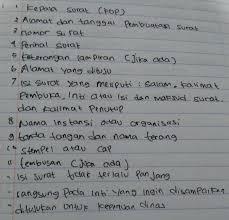 1. Kepala surat (KOP)
2 Alamat dan tanggal Pembuatan surat
3 nomor surat
4 Perihal surat
5 Keterangan lampiran (Jika ada)
6 Alamat yang dituju
7 Isi surat yang meliputi : salam, kalimat
Pembuka, Inti atau Isi dan maksud surat,
dan kalimat Penutup
8 Nama Instansi atau organisasi
9 tanda tangan dan nama terang
10 stempel atau cap
11 tembusan (Jika ada)
- Isi surat tidak terlalu Panjang
- langsung Pada Inti yang ingin disampaikan
- ditujukan untuk keperluan dinas